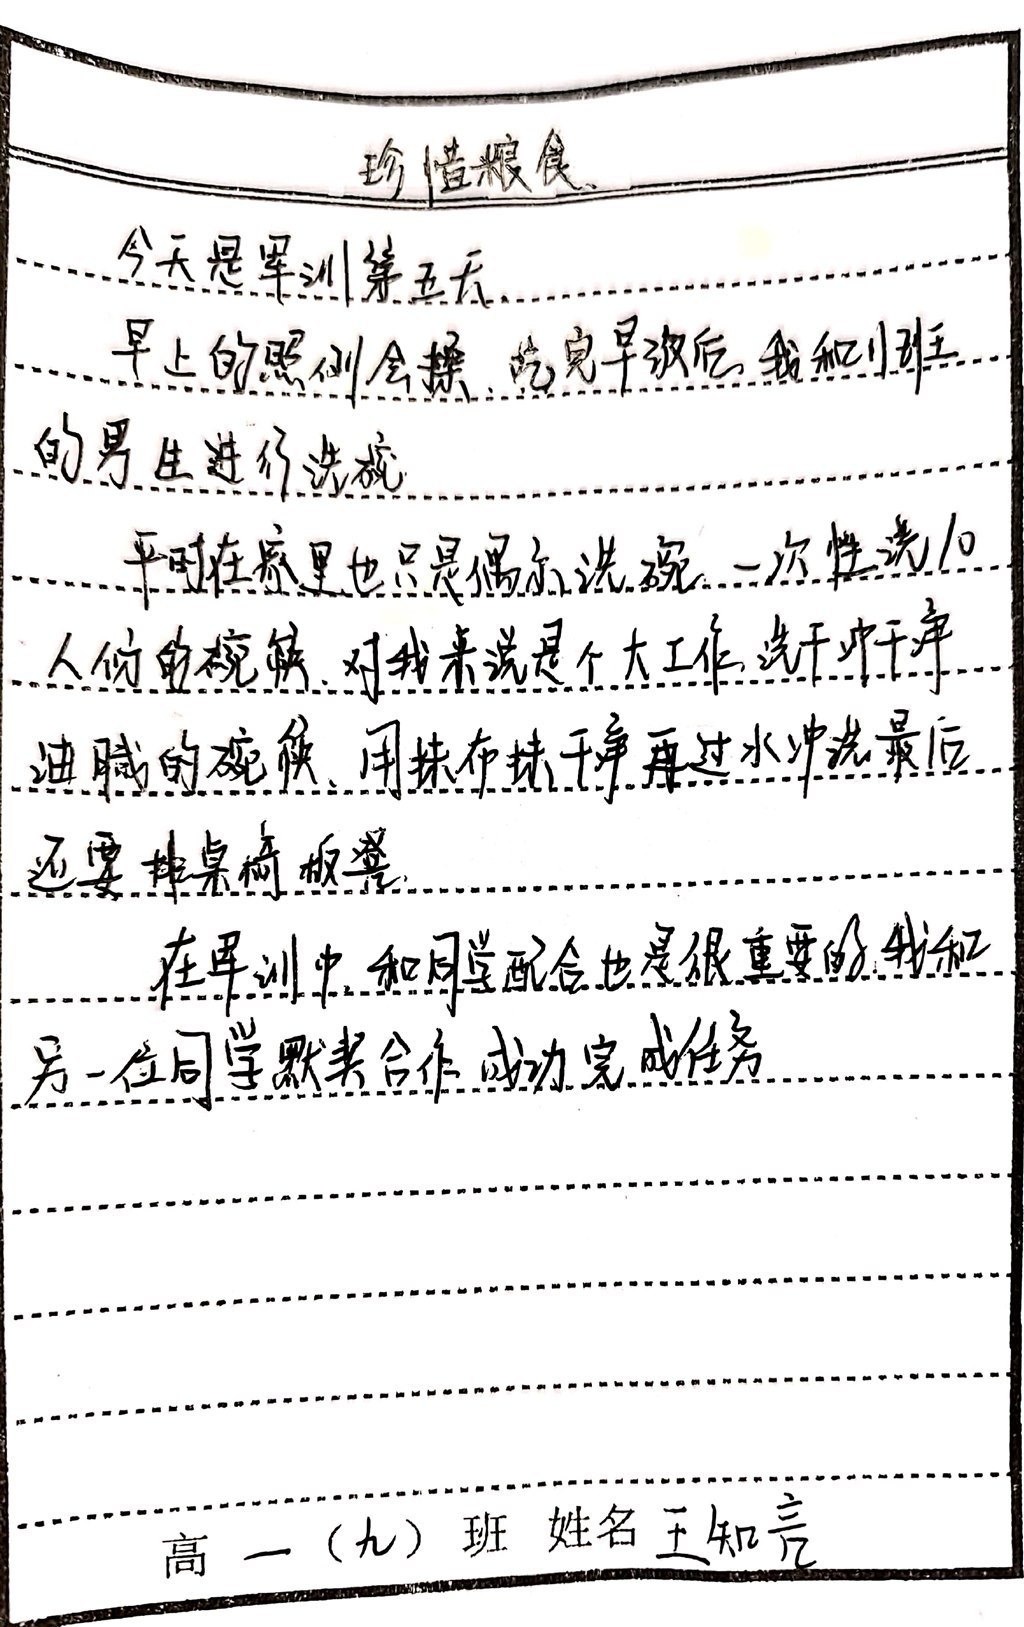 珍惜粮食、
今天是军训第五天、
早上的照例会操、吃完早饭后、我和小班
的男生进行洗碗
平时在家里也只是偶尔洗碗、一次性洗10
人份的碗筷、对我来说是个大工作、洗干冲干净
油腻的碗筷、用抹布抹干净再过水冲洗最后
还要排桌椅板凳、
在军训中、和同学配合也是很重要的、我和
另一位同学默契合作成功完成任务
高一（九）班 姓名 王知言